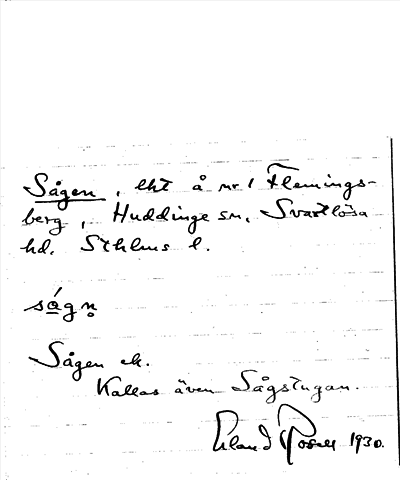 Sågen, lht å nr 1 Flemings-
berg, Huddinge sn, Svartlösa
hd. Sthlms l.
ság n̥
Sågen ek.
Kallas även Sågstugan.
Erland Rosell 1930.